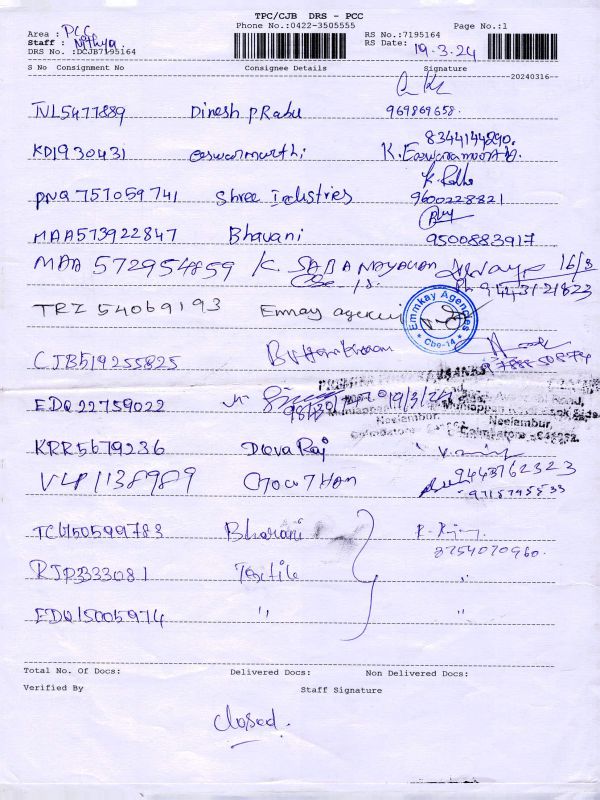 TPC/CJB DRS - PCC
Area : PCC Phone No.:0422-3505555 Page No.:1
Staff : Nithya. RS No.:7195164
DRS No. :DCJB7195164 RS Date: 19.3.24
S No Consignment No Consignee Details Signature
20240316
TVL5477889 Dinesh pRabu 969869658.
8344144290.
KD1930431 easwarmurthi
PNQ 757059741 Shree Industries 9600228821
MAA573922847 Bhavani 9500883917
MAA 572954859 K. 16/3
Ph 9443121823
TRZ 54069193 Emmay agencies Emmkay Agencies Cbe-14
CJB519255825
EDQ 22759022 19/3/24
Neelambur,
KRR5679236 Deva Raj
VLP1138989 Gowthan 9443762323
9715795533
TCW150599783 Bharani
8754070960.
RJP333081 Textile "
EDQ15005974 " "
Total No. Of Docs: Delivered Docs: Non Delivered Docs:
Verified By Staff Signature
closed.